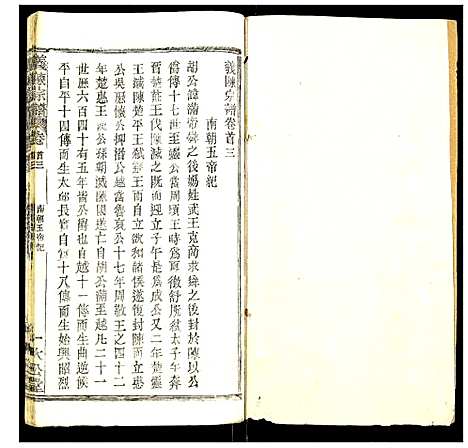 義陳宗譜卷首三
南朝五帝紀
胡公諱滿帝舜之後媯姓武王克商求舜之後封於陳以公
爵傳十七世至靈公當周頃王時為夏徵舒所弒太子午奔
晉楚莊王伐陳滅之既而迎立子午是為成公又二年楚靈
王滅陳楚平王弒靈王而自立欲和諸侯遂復封陳立悼
公吳歷懷公抑湣公越當魯哀公十七年周敬王之四十二
年楚惠王殺湣公孫朝滅陳國遂亡自胡公滿至越凡二十一
世歷六百四十有五年皆公爵也自越十一傳而生曲逆侯
平自平十四傳而生太邱長寔自寔十八傳而生始興昭烈
義陳宗譜
卷首三
南朝五帝紀
一